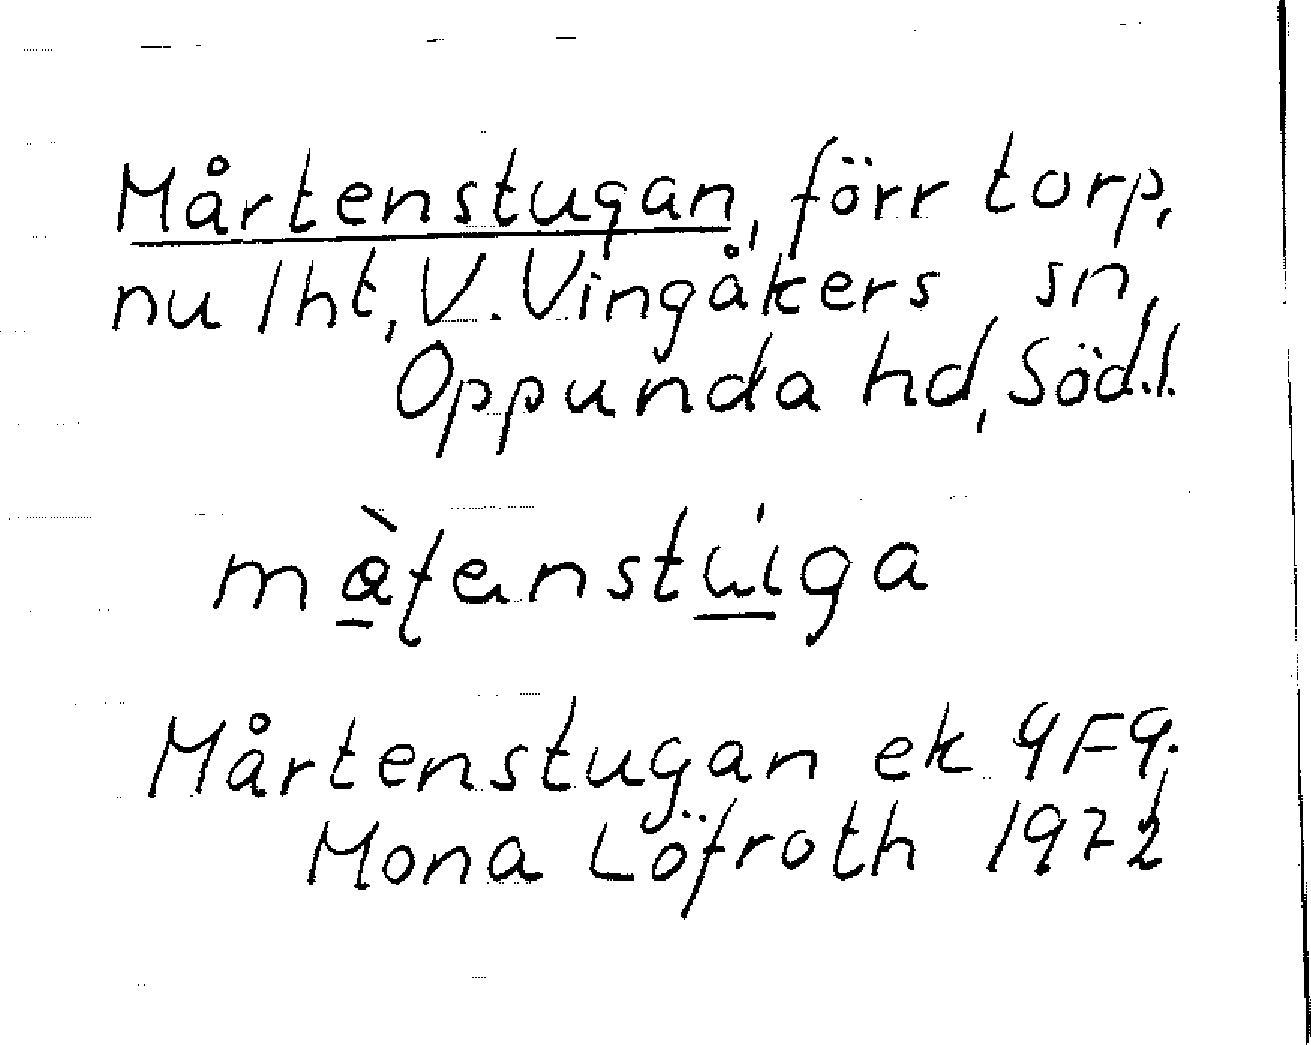 Mårtenstugan, förr torp,
nu lht, V. Vingåkers sn,
Oppunda hd, Södl.
Mårtenstugan ek 9F9.
Mona Löfroth 1972